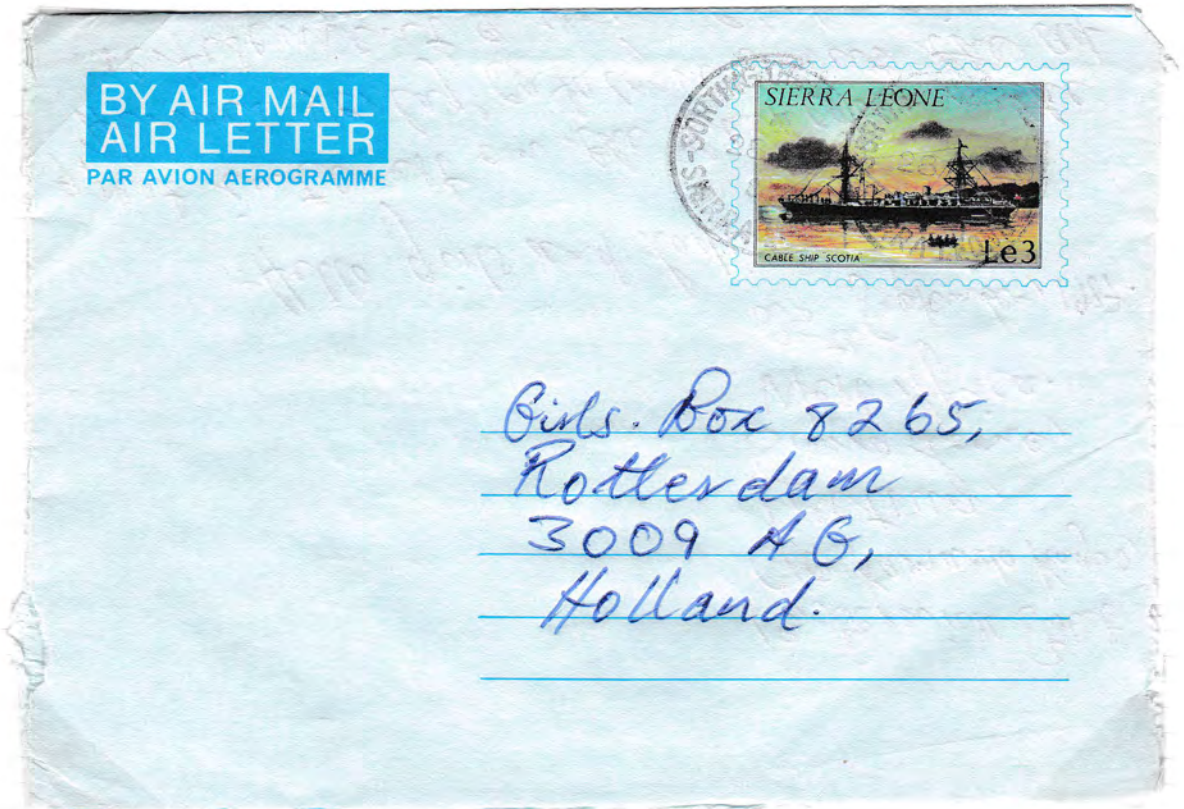 BY AIR MAIL
AIR LETTER
PAR AVION AEROGRAMME
SIERRA LEONE
CABLE SHIP SCOTIA
Le3
Girls. Box 8265,
Rotterdam
3009 AG,
Holland.